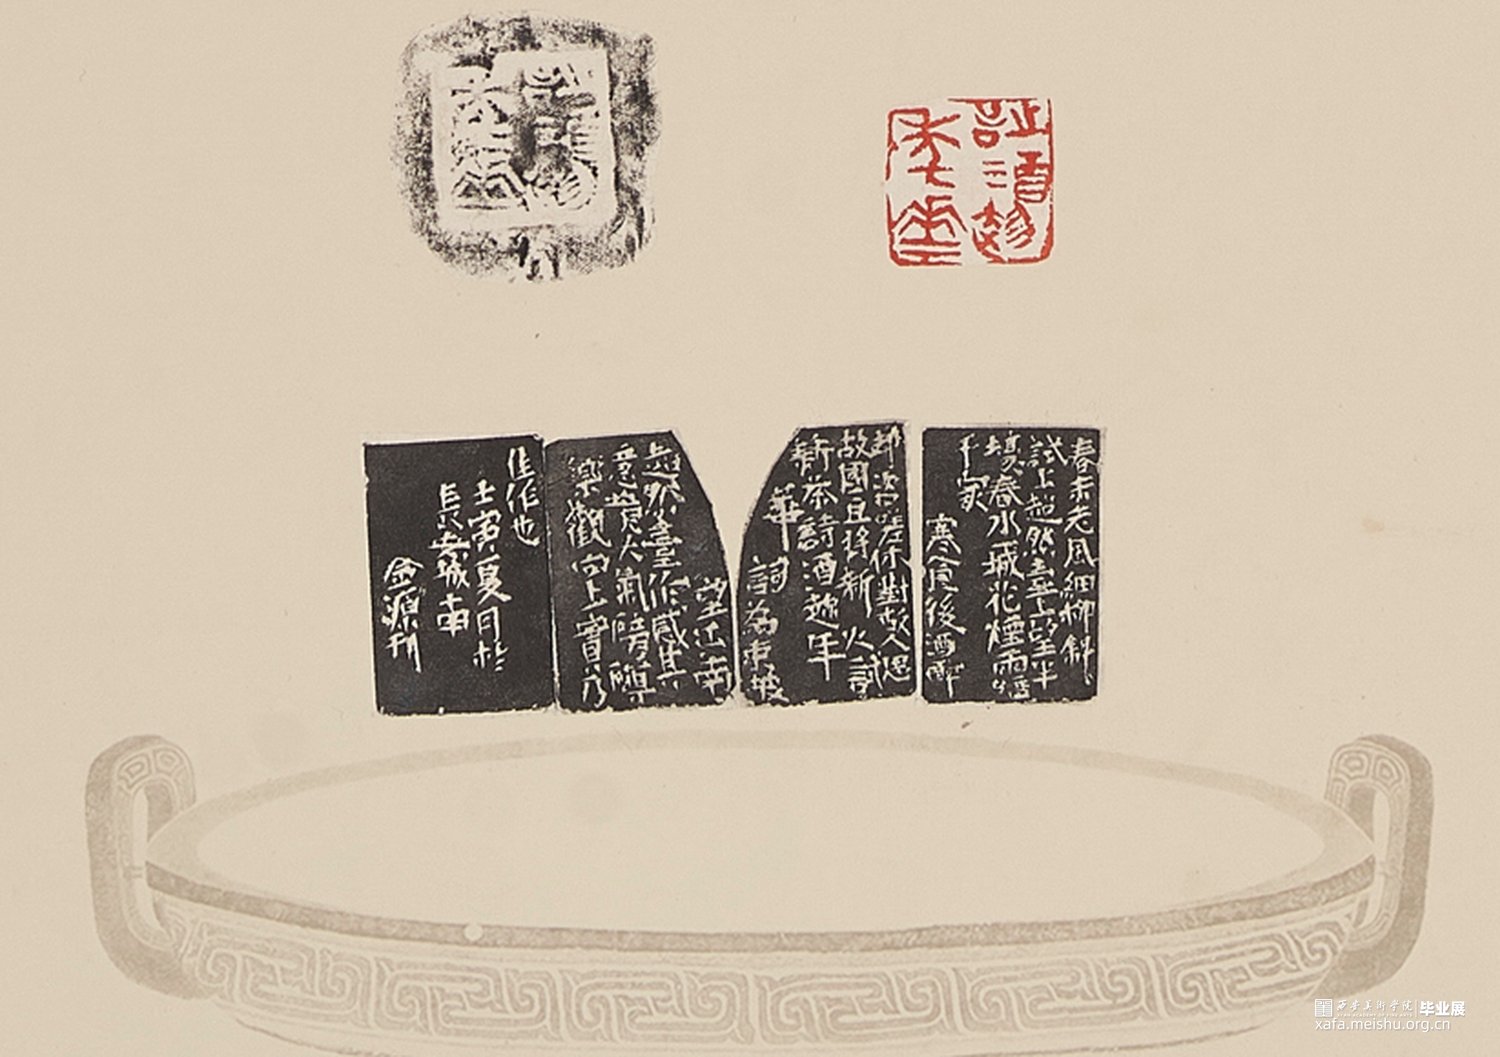 詩酒趁
年華
春未老風細柳斜
試上超然臺上望半
壕春水一城花煙雨暗
千家
寒食後酒醒
却咨嗟休對故人思
故國且將新火試
新茶詩酒趁年
華
詞為東坡
望江南
超然臺作感其
樂觀向上實乃
佳作也
壬寅夏月於
長安城南
金源刊
西安美術學院 毕业展
xafa.meishu.org.cn